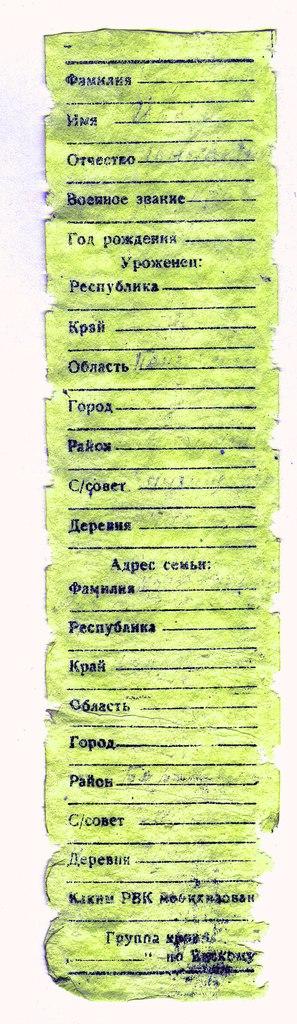 Фамилия
Имя
Отчество
Военное звание
Год рождения
Уроженец:
Республика
Край
Область
Город
Район
С/совет
Деревня
Адрес семьи:
Фамилия
Республика
Край
Область
Город
Район
С/совет
Деревни
Каким РВК мобилизован
Группа крови
" по Янскому